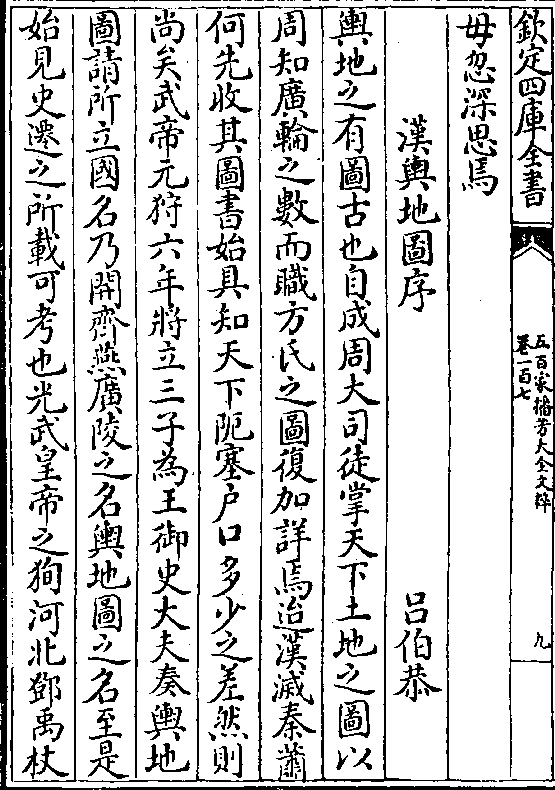 欽定四庫全書
五百家播芳大全文粹
卷一百七
九
毋忽深思焉
漢輿地圖序
吕伯恭
輿地之有圖古也自成周大司徒掌天下土地之圖以
周知廣輪之數而職方氏之圖復加詳焉迨漢滅秦蕭
何先收其圖書始具知天下阨塞户口多少之差然則
尚矣武帝元狩六年將立三子為王御史大夫奏輿地
圖請所立國名乃開齊燕廣陵之名輿地圖之名至是
始見史遷之所載可考也光武皇帝之狥河北鄧禹杖